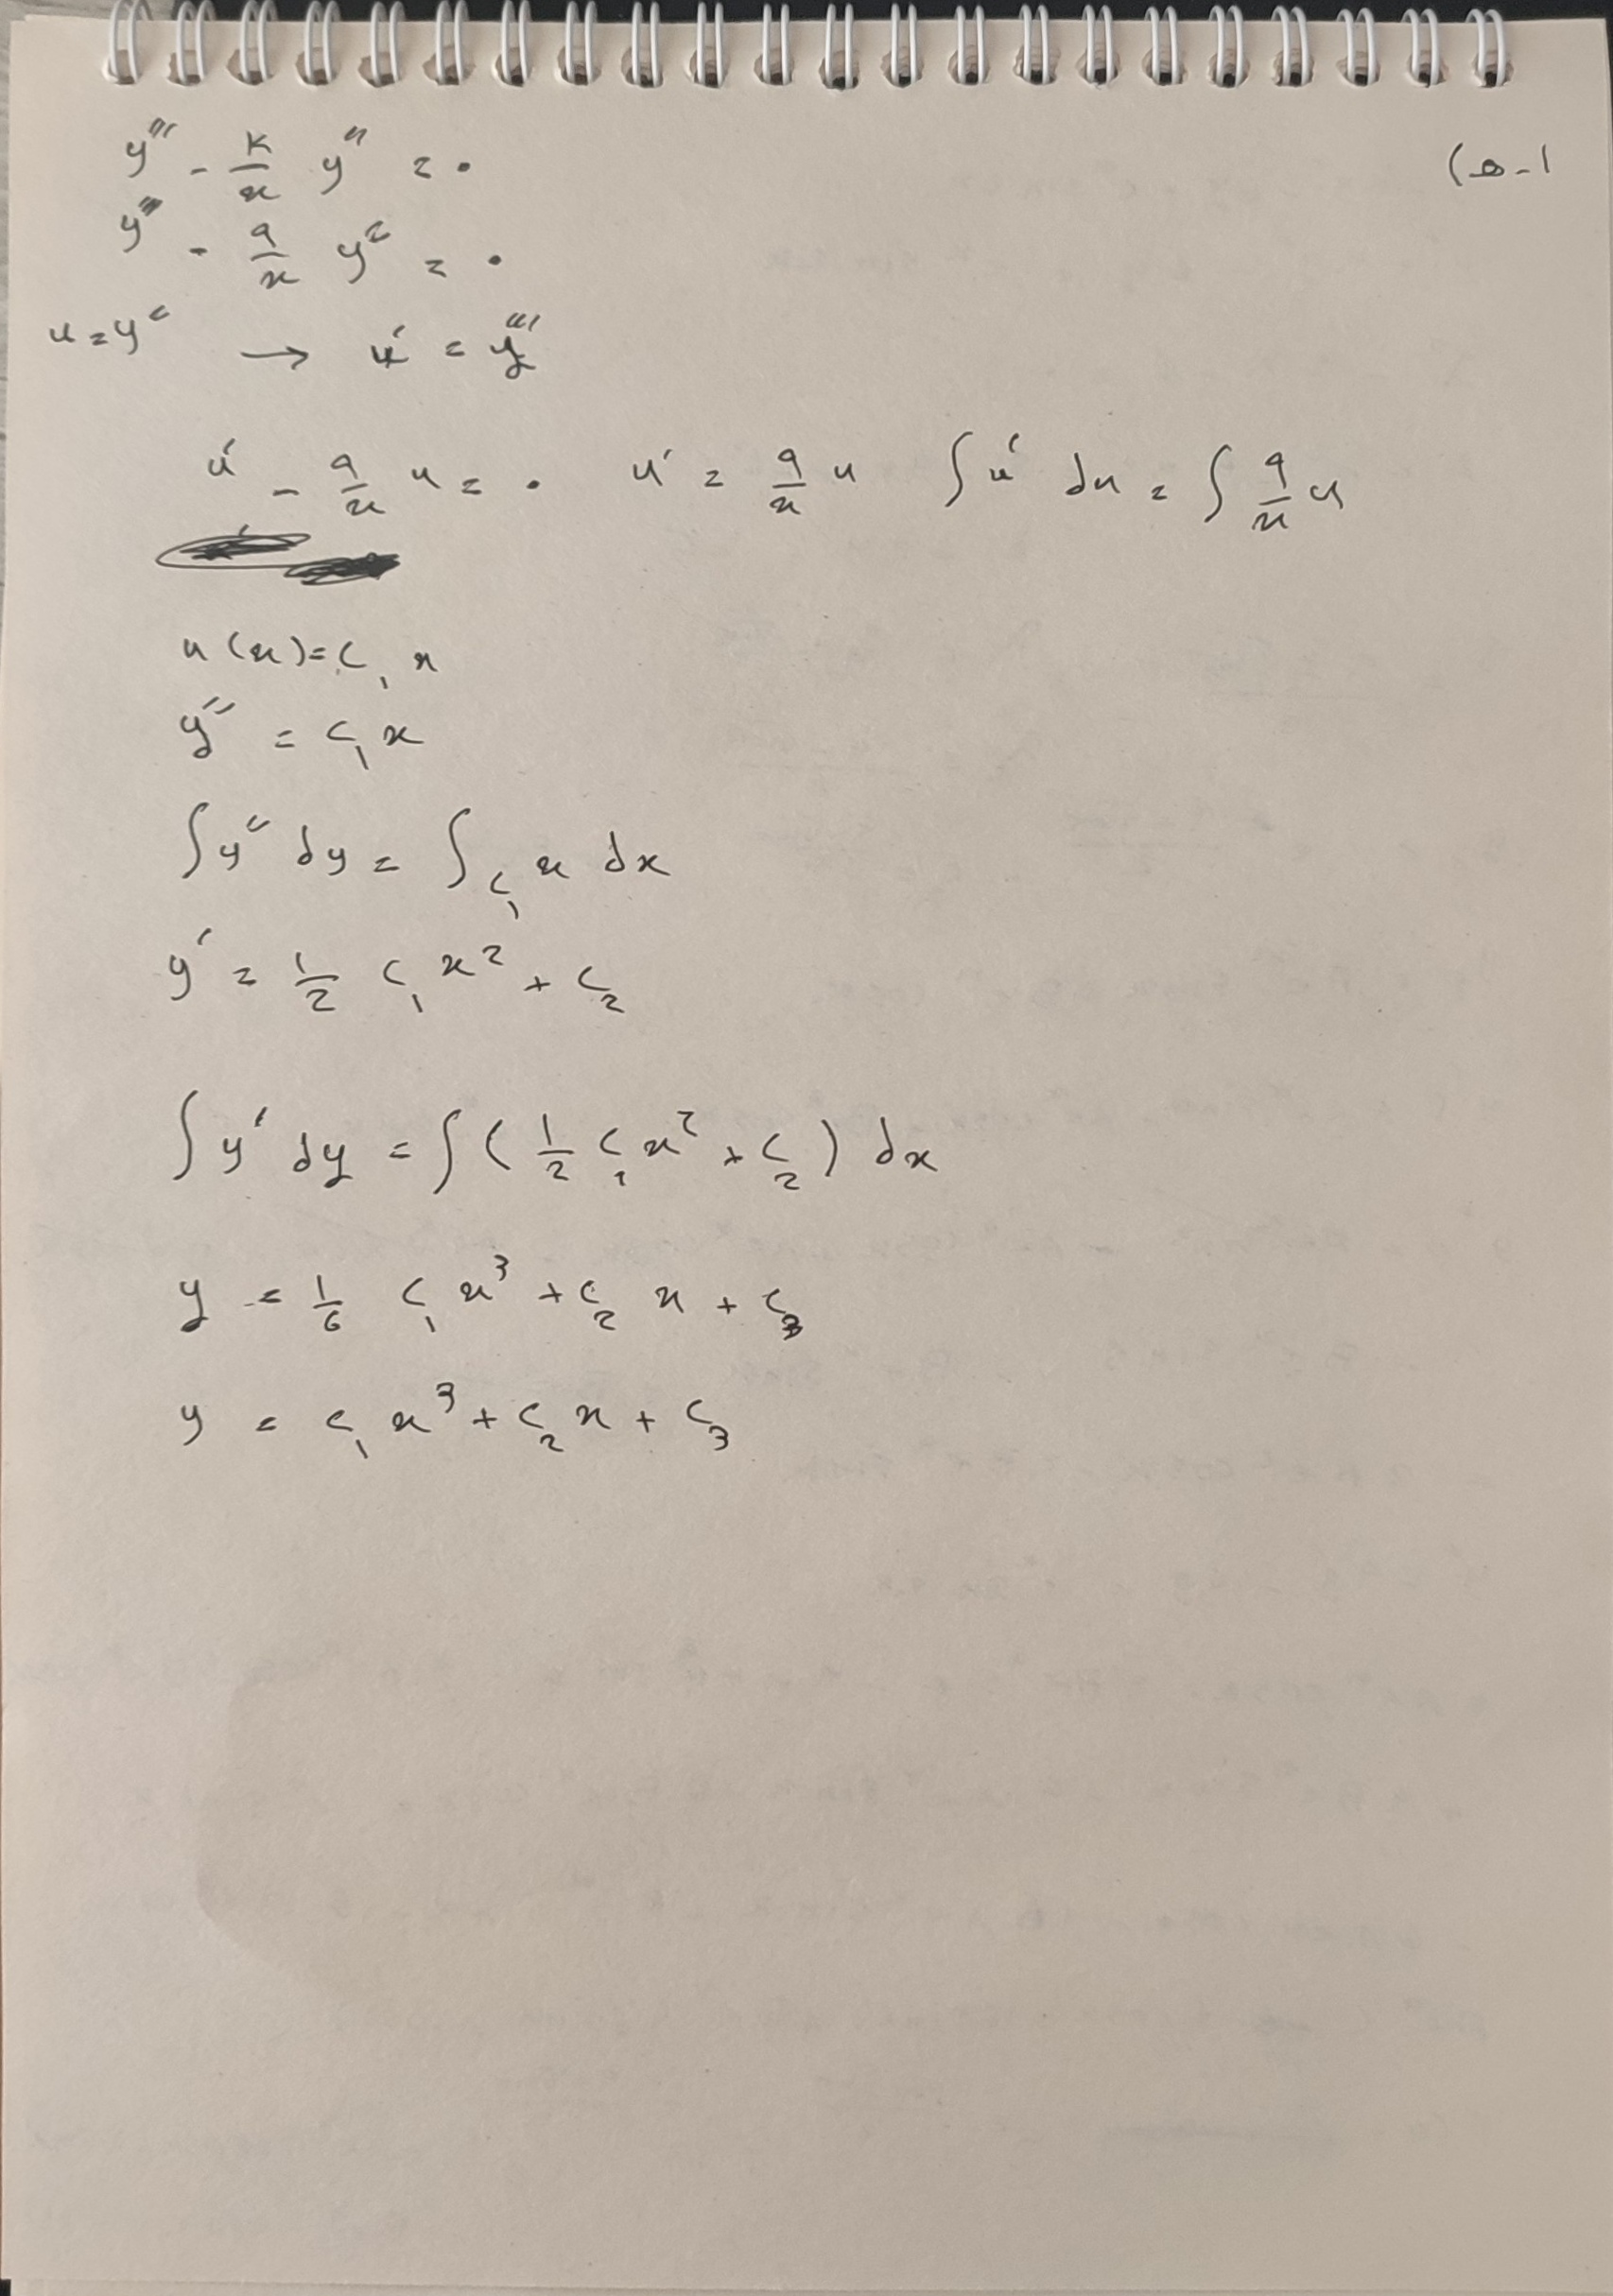 (ه-1
y''' - K/x y'' = 0
y''' - 9/x y'' = 0
u = y'' → u' = y'''
u' - 9/x u = 0 u' = 9/x u ∫ u' du = ∫ 9/x u
u(x) = c₁ x
y'' = c₁ x
∫ y'' dy = ∫ c₁ x dx
y' = 1/2 c₁ x² + c₂
∫ y' dy = ∫ ( 1/2 c₁ x² + c₂ ) dx
y = 1/6 c₁ x³ + c₂ x + c₃
y = c₁ x³ + c₂ x + c₃